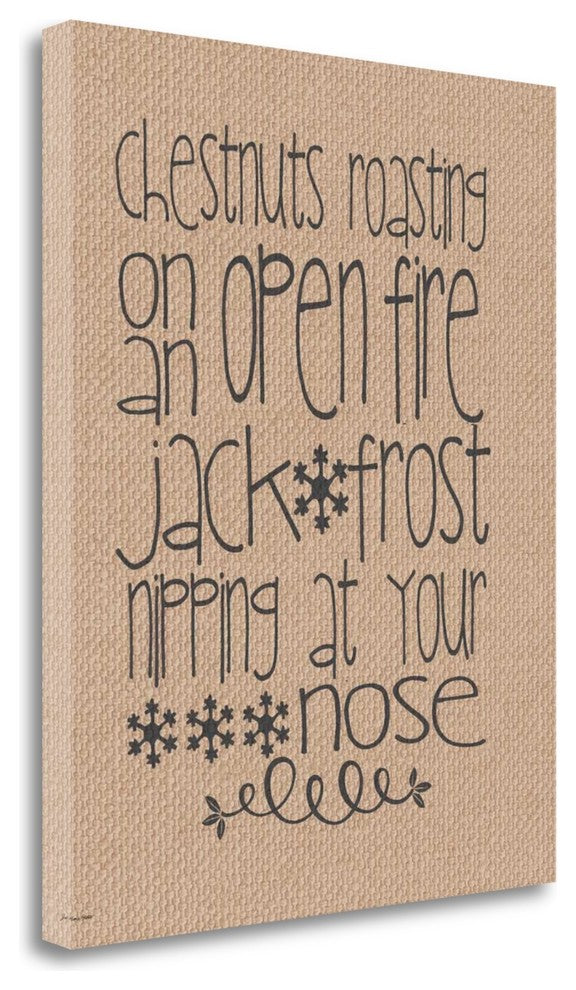 chestnuts roasting
on open fire
an
jack frost
nipping at your
nose